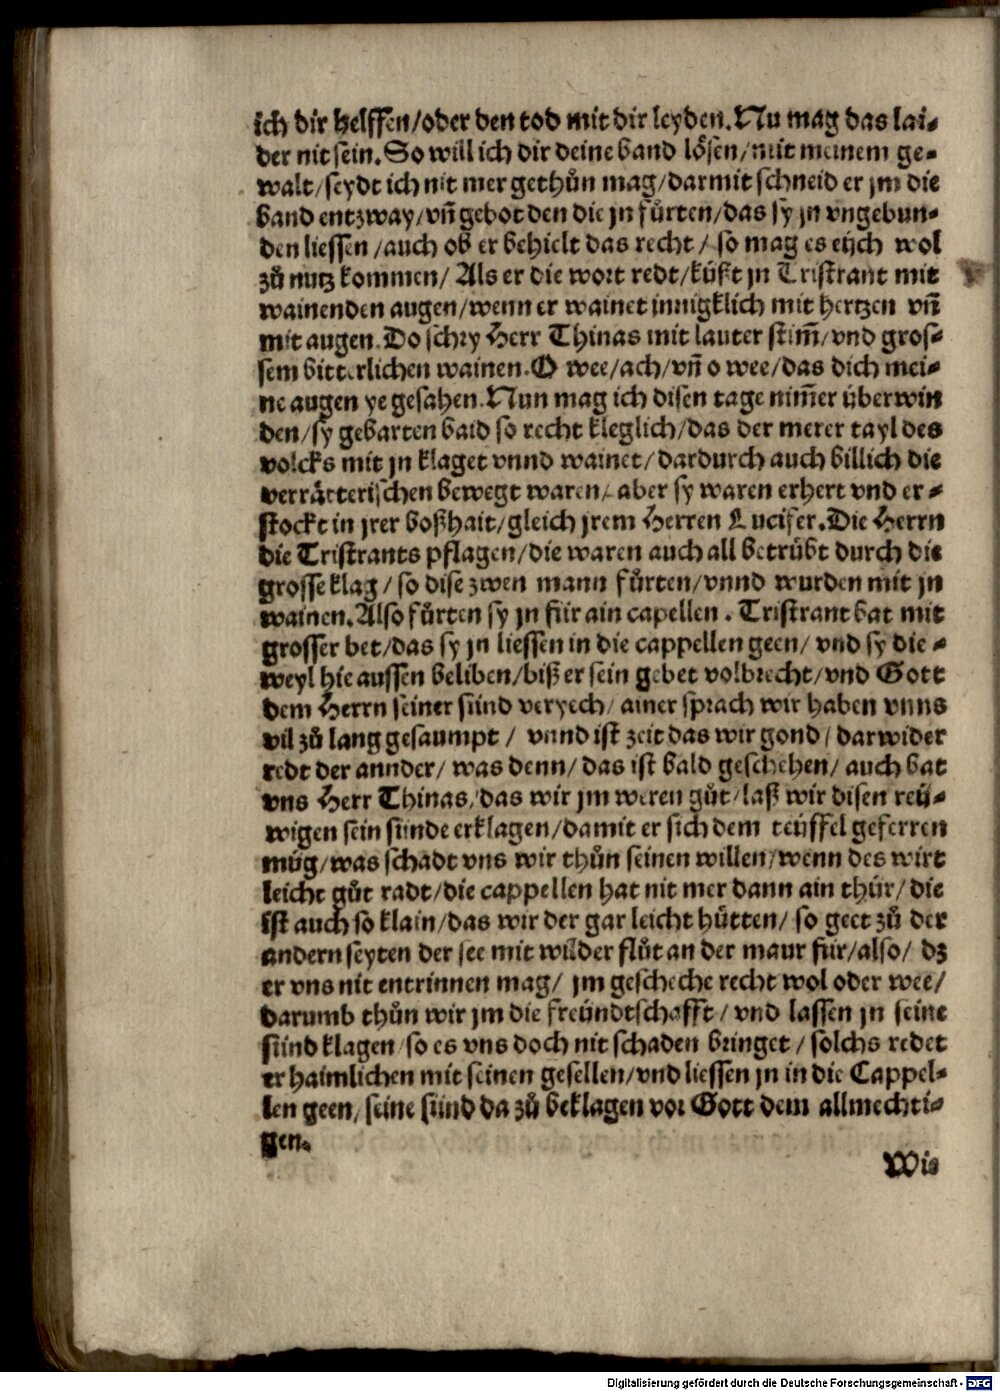 ich dir helffen/oder den tod mit dir leyden. Nu mag das lai-
der nit sein. So will ich dir deine band lösen/mit meinem ge-
walt/seydt ich nit mer gethůn mag/darmit schneid er jm die
band entzway/vñ gebot den die jn fůrten/das sy jn vngebun-
den liessen/auch ob er behielt das recht/so mag es eüch wol
zů nutz kommen/Als er die wort redt/küßt jn Tristrant mit
wainenden augen/wenn er wainet innigklich mit hertzen vñ
mit augen. Do schry Herr Thinas mit lauter stim̃/vnd gros-
sem bitterlichen wainen. O wee/ach/vñ o wee/das dich mei-
ne augen ye gesahen. Nun mag ich disen tage nim̃er überwin
den/sy gebarten baid so recht kleglich/das der merer tayl des
volcks mit jn klaget vnnd wainet/dardurch auch billich die
verrätterischen bewegt waren/aber sy waren erhert vnd er-
stockt in jrer boßhait/gleich jrem Herren Lucifer. Die Herrn
die Tristrants pflagen/die waren auch all betrübt durch die
grosse klag/so dise zwen mann fůrten/vnnd wurden mit jn
wainen. Also fůrten sy jn für ain capellen. Tristrant bat mit
grosser bet/das sy jn liessen in die cappellen geen/vnd sy die-
weyl hie aussen beliben/biß er sein gebet volbrecht/vnd Gott
dem Herrn seiner sünd veryech/ainer sprach wir haben vnns
vil zů lang gesaumpt/vnnd ist zeit das wir gond/darwider
redt der annder/was denn/das ist bald geschehen/auch bat
vns Herr Thinas/das wir jm weren gůt/laß wir disen reü-
wigen sein sünde erklagen/damit er sich dem teüffel geferren
müg/was schadt vns wir thůn seinen willen/wenn des wirt
leicht gůt radt/die cappellen hat nit mer dann ain thür/die
ist auch so klain/das wir der gar leicht hütten/so geet zů der
andern seyten der see mit wilder flůt an der maur für/also/dz
er vns nit entrinnen mag/jm gescheche recht wol oder wee/
darumb thůn wir jm die freündtschafft/vnd lassen jn seine
sünd klagen/so es vns doch nit schaden bringet/solchs redet
er haimlichen mit seinen gesellen/vnd liessen jn in die Cappel-
len geen/seine sünd da zů beklagen vor Gott dem allmechti-
gen.
Wie
Digitalisierung gefördert durch die Deutsche Forschungsgemeinschaft - DFG